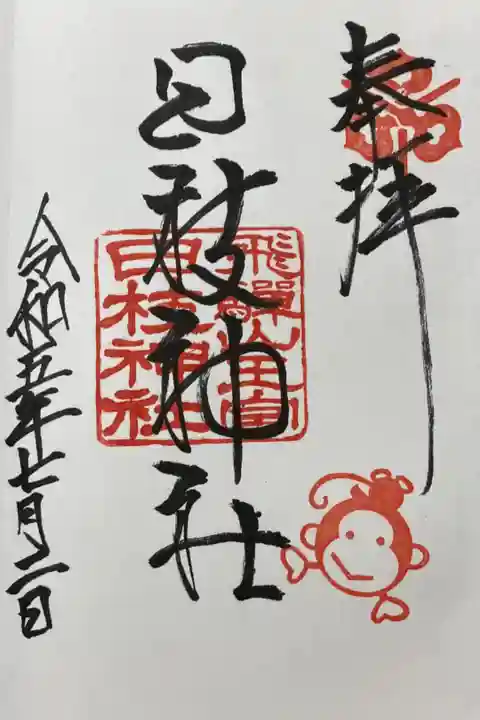 奉拝
日枝神社
飛騨山王宮
日枝神社
令和五年七月二日